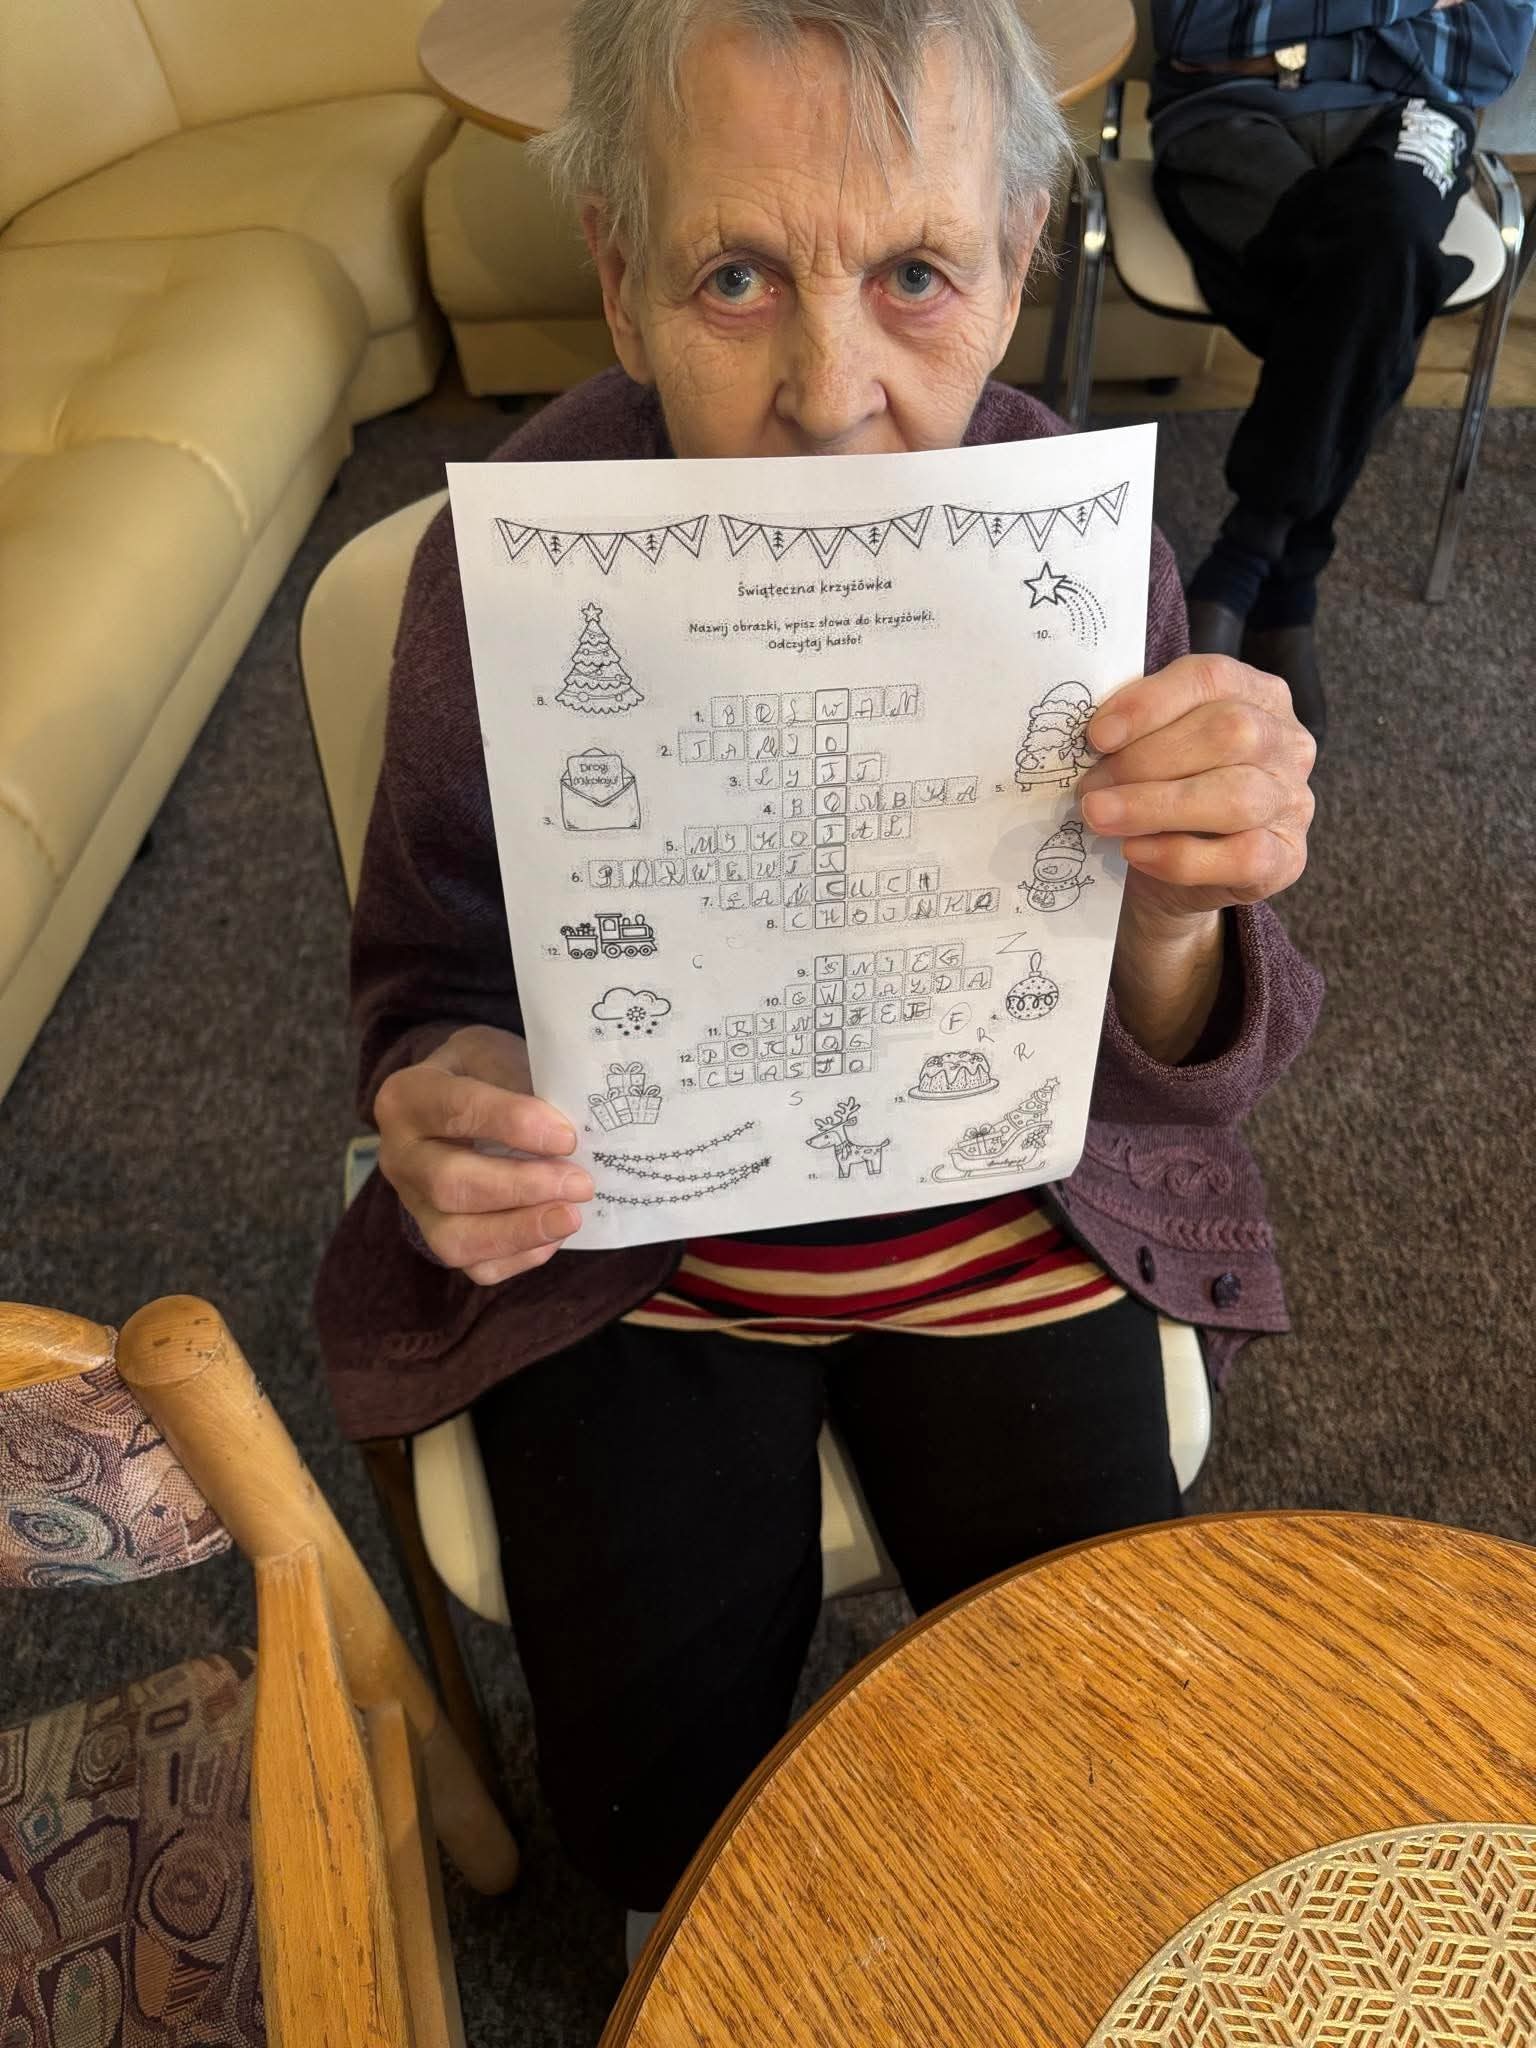 Świąteczna krzyżówka
Nazwij obrazki, wpisz słowa do krzyżówki.
Odczytaj hasło!
10.
8.
1. B O Ł W A N
2. J A M I O
Drogi
Mikołaju!
3. L Y I I
3.
4. B O M B K A
5.
5. M I K O Ł A J
6.
7. Ł A Ń C U C H
8. C H O I N K A
1.
12.
C
Z
9. Ś N I E G
10. G W I A Z D A
4.
9.
11. R Y N I F E R
F
R
R
12. P O C I Ą G
13. C I A S T O
13.
S
6.
11.
2.
7.